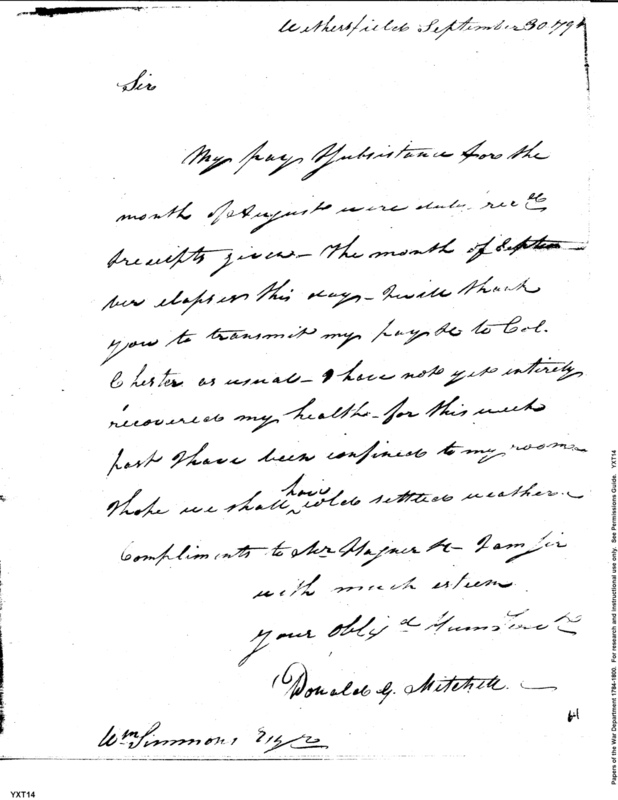 Wethersfield September 30 179
Sir
My pay & Subsistance for the
month of August were duly recd
receipts given – The month of Septem
ber elapses this day – I will thank
you to transmit my pay &c to Col.
Chester as usual – I have not yet entirely
recovered my health – for this week
past I have been confined to my room
I hope we shall have cold settled weather. –
Compliments to Mr Hagner &c – I am Sir
with much esteem
your Obligd Humb Servt
Donald G. Mitchell. –
Wm Simmons Esqr
YXT14
Papers of the War Department 1784-1800. For research and instructional use only. See Permissions Guide. YXT14